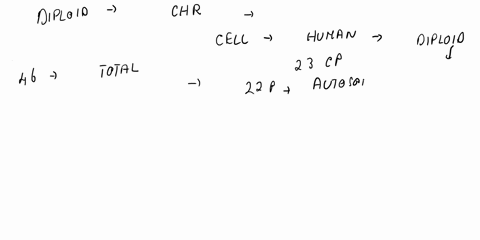 DIPLOID → CHR →
CELL → HUMAN → DIPLOID ↓
23 CP
46 → TOTAL → 22 P → AUTOSO